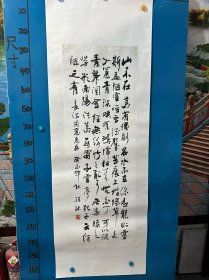 山不在高有仙则名水不在深有龙则灵
斯是陋室惟吾德馨苔痕上阶绿草色
入帘青谈笑有鸿儒往来无白丁可以调
素琴阅金经无丝竹之乱耳无案牍之
劳形南阳诸葛庐西蜀子云亭孔子云何
陋之有